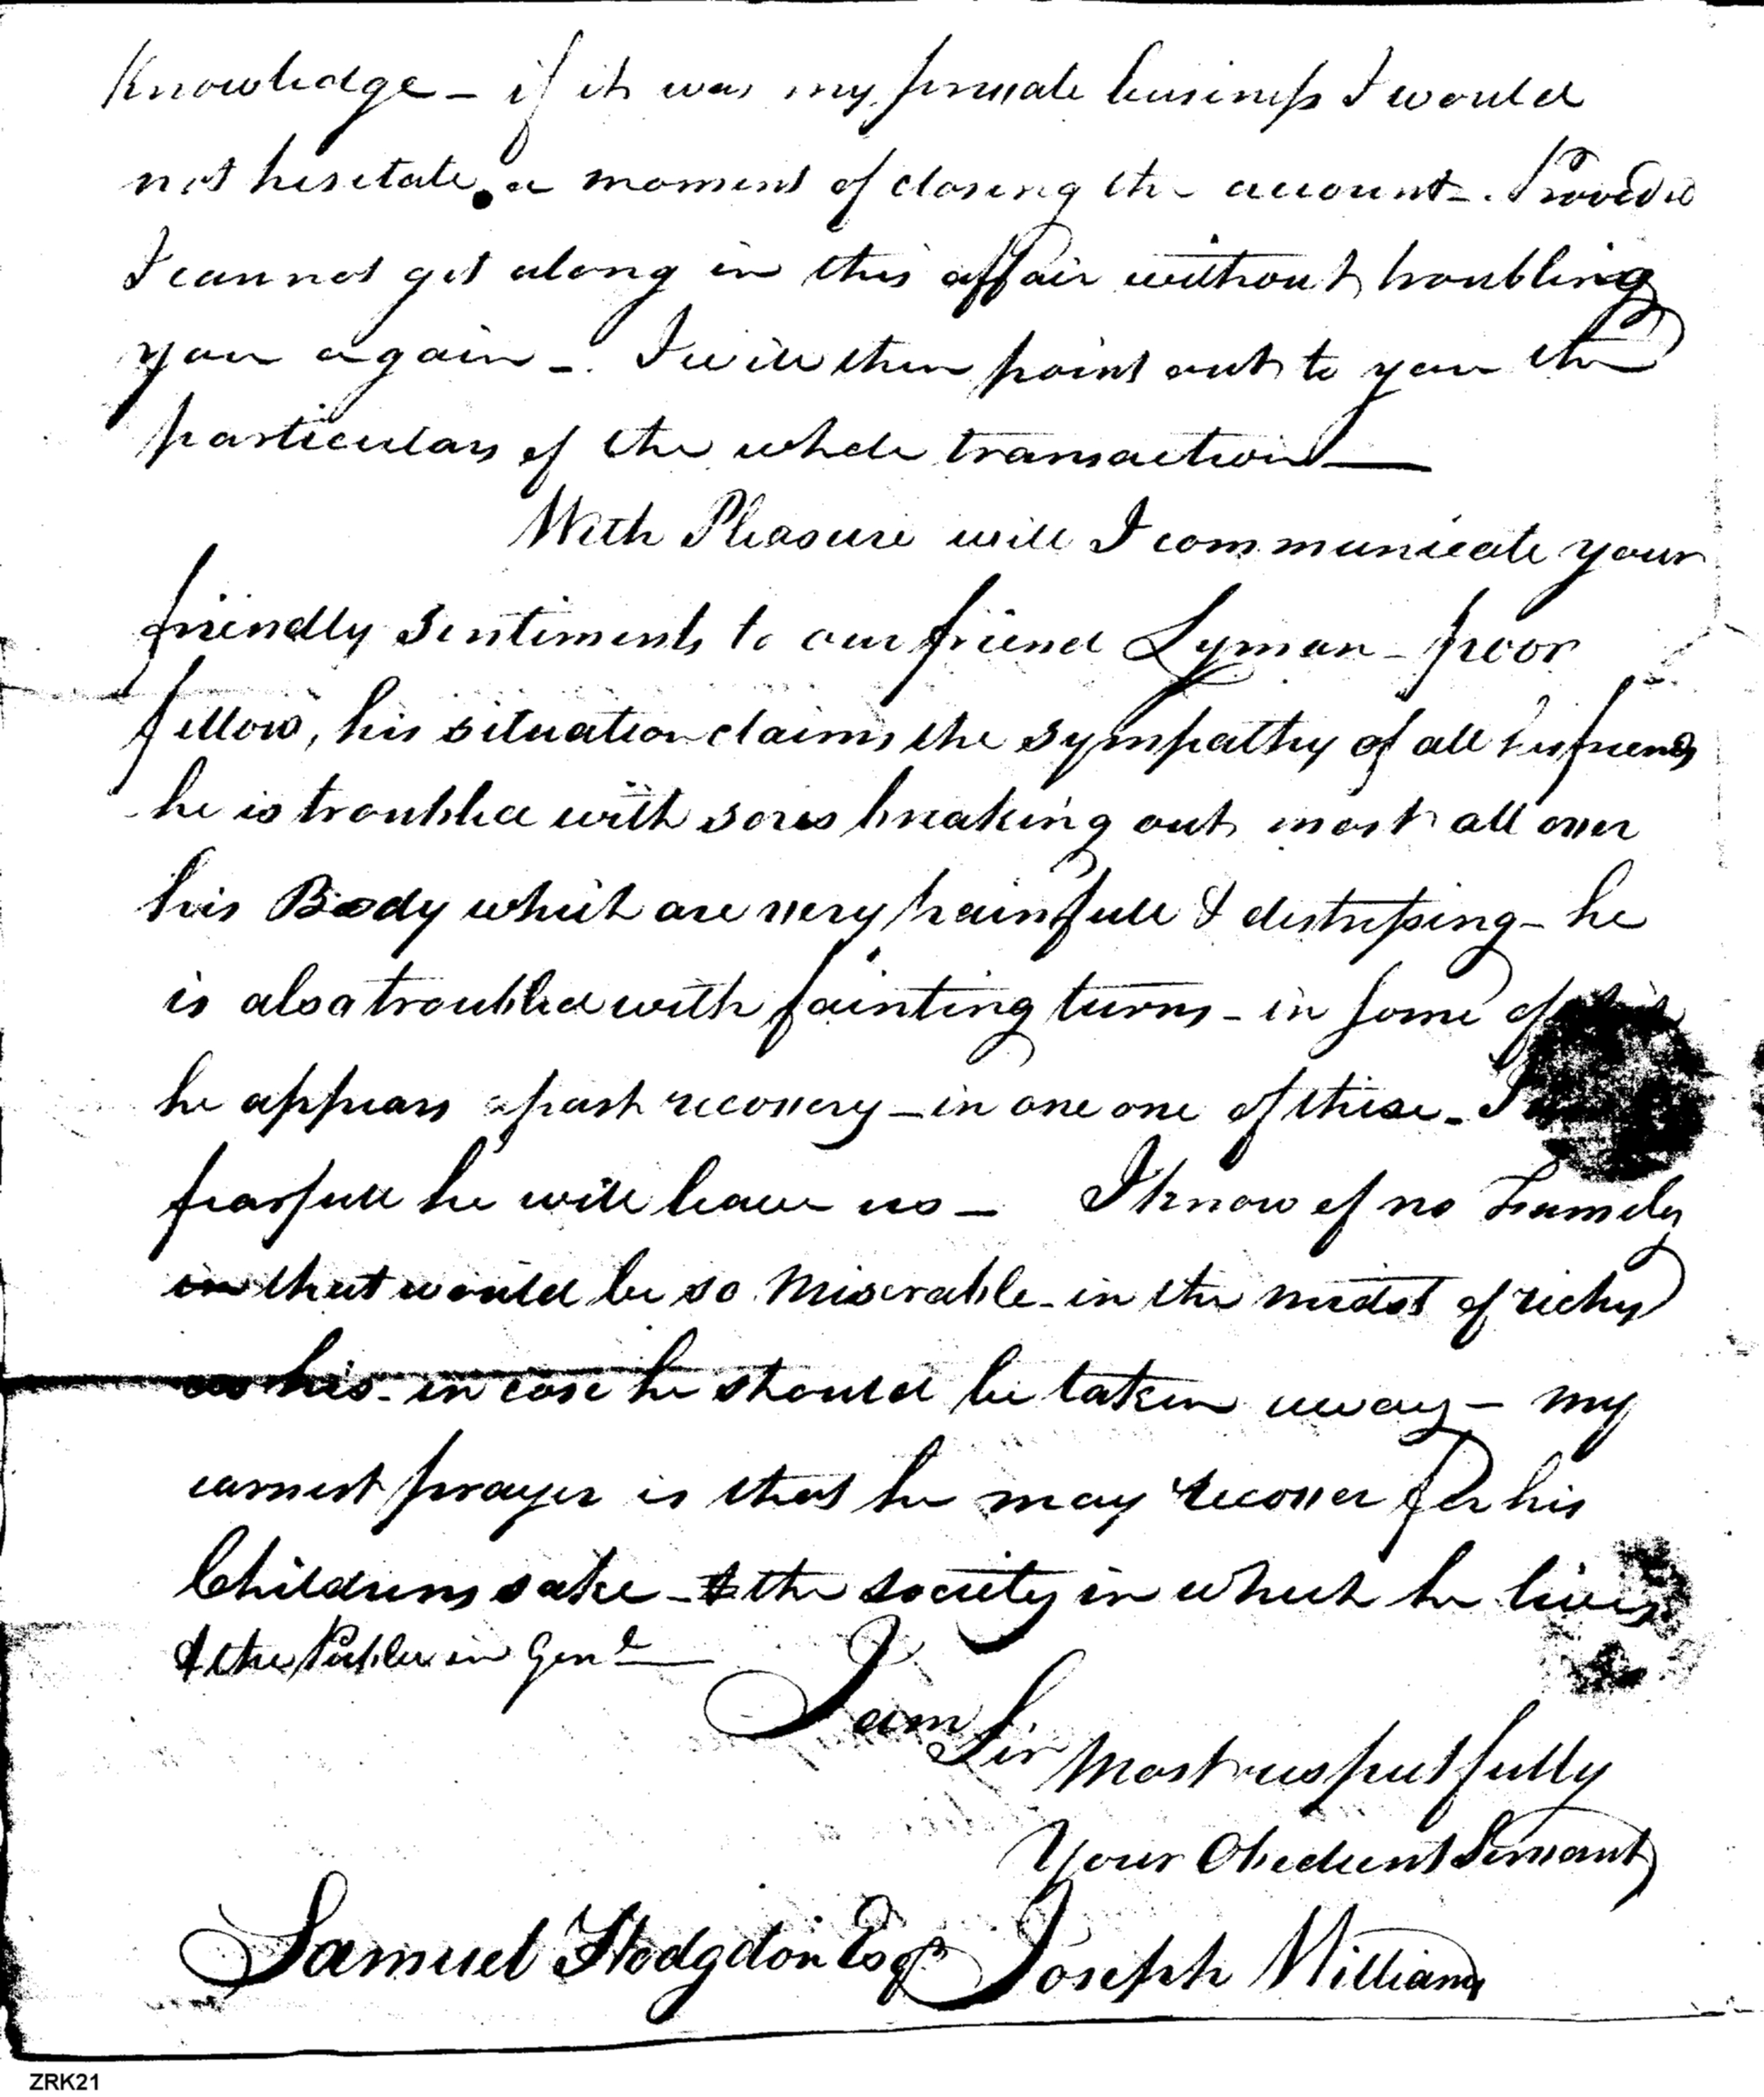 Knowledge – if it was my private business I would
not hesitate a moment of closing the account –. Provided
I cannot get along in this affair without troubling
you again –. I will then point out to you the
particulars of the whole transaction —
With Pleasure will I communicate your
friendly Sentiments to our friend Lyman – poor
fellow, his situation claims the sympathy of all his friends
he is troubled with sores breaking out most all over
his Body which are very painfull & distressing – he
is also troubled with fainting turns – in some of
he appears past recovery – in one one of these – I
fearfull he will leave us – I know of no Family
that would be so Miserable – in the midst of riches
as his – in case he should be taken away – my
earnest prayer is that he may recover for his
Childrens sake – & the society in which he lives
& the Public in Genl —
I am
Sir
Most respectfully
Your Obedient Servant
Samuel Hodgdon Esqr Joseph Williams
ZRK21